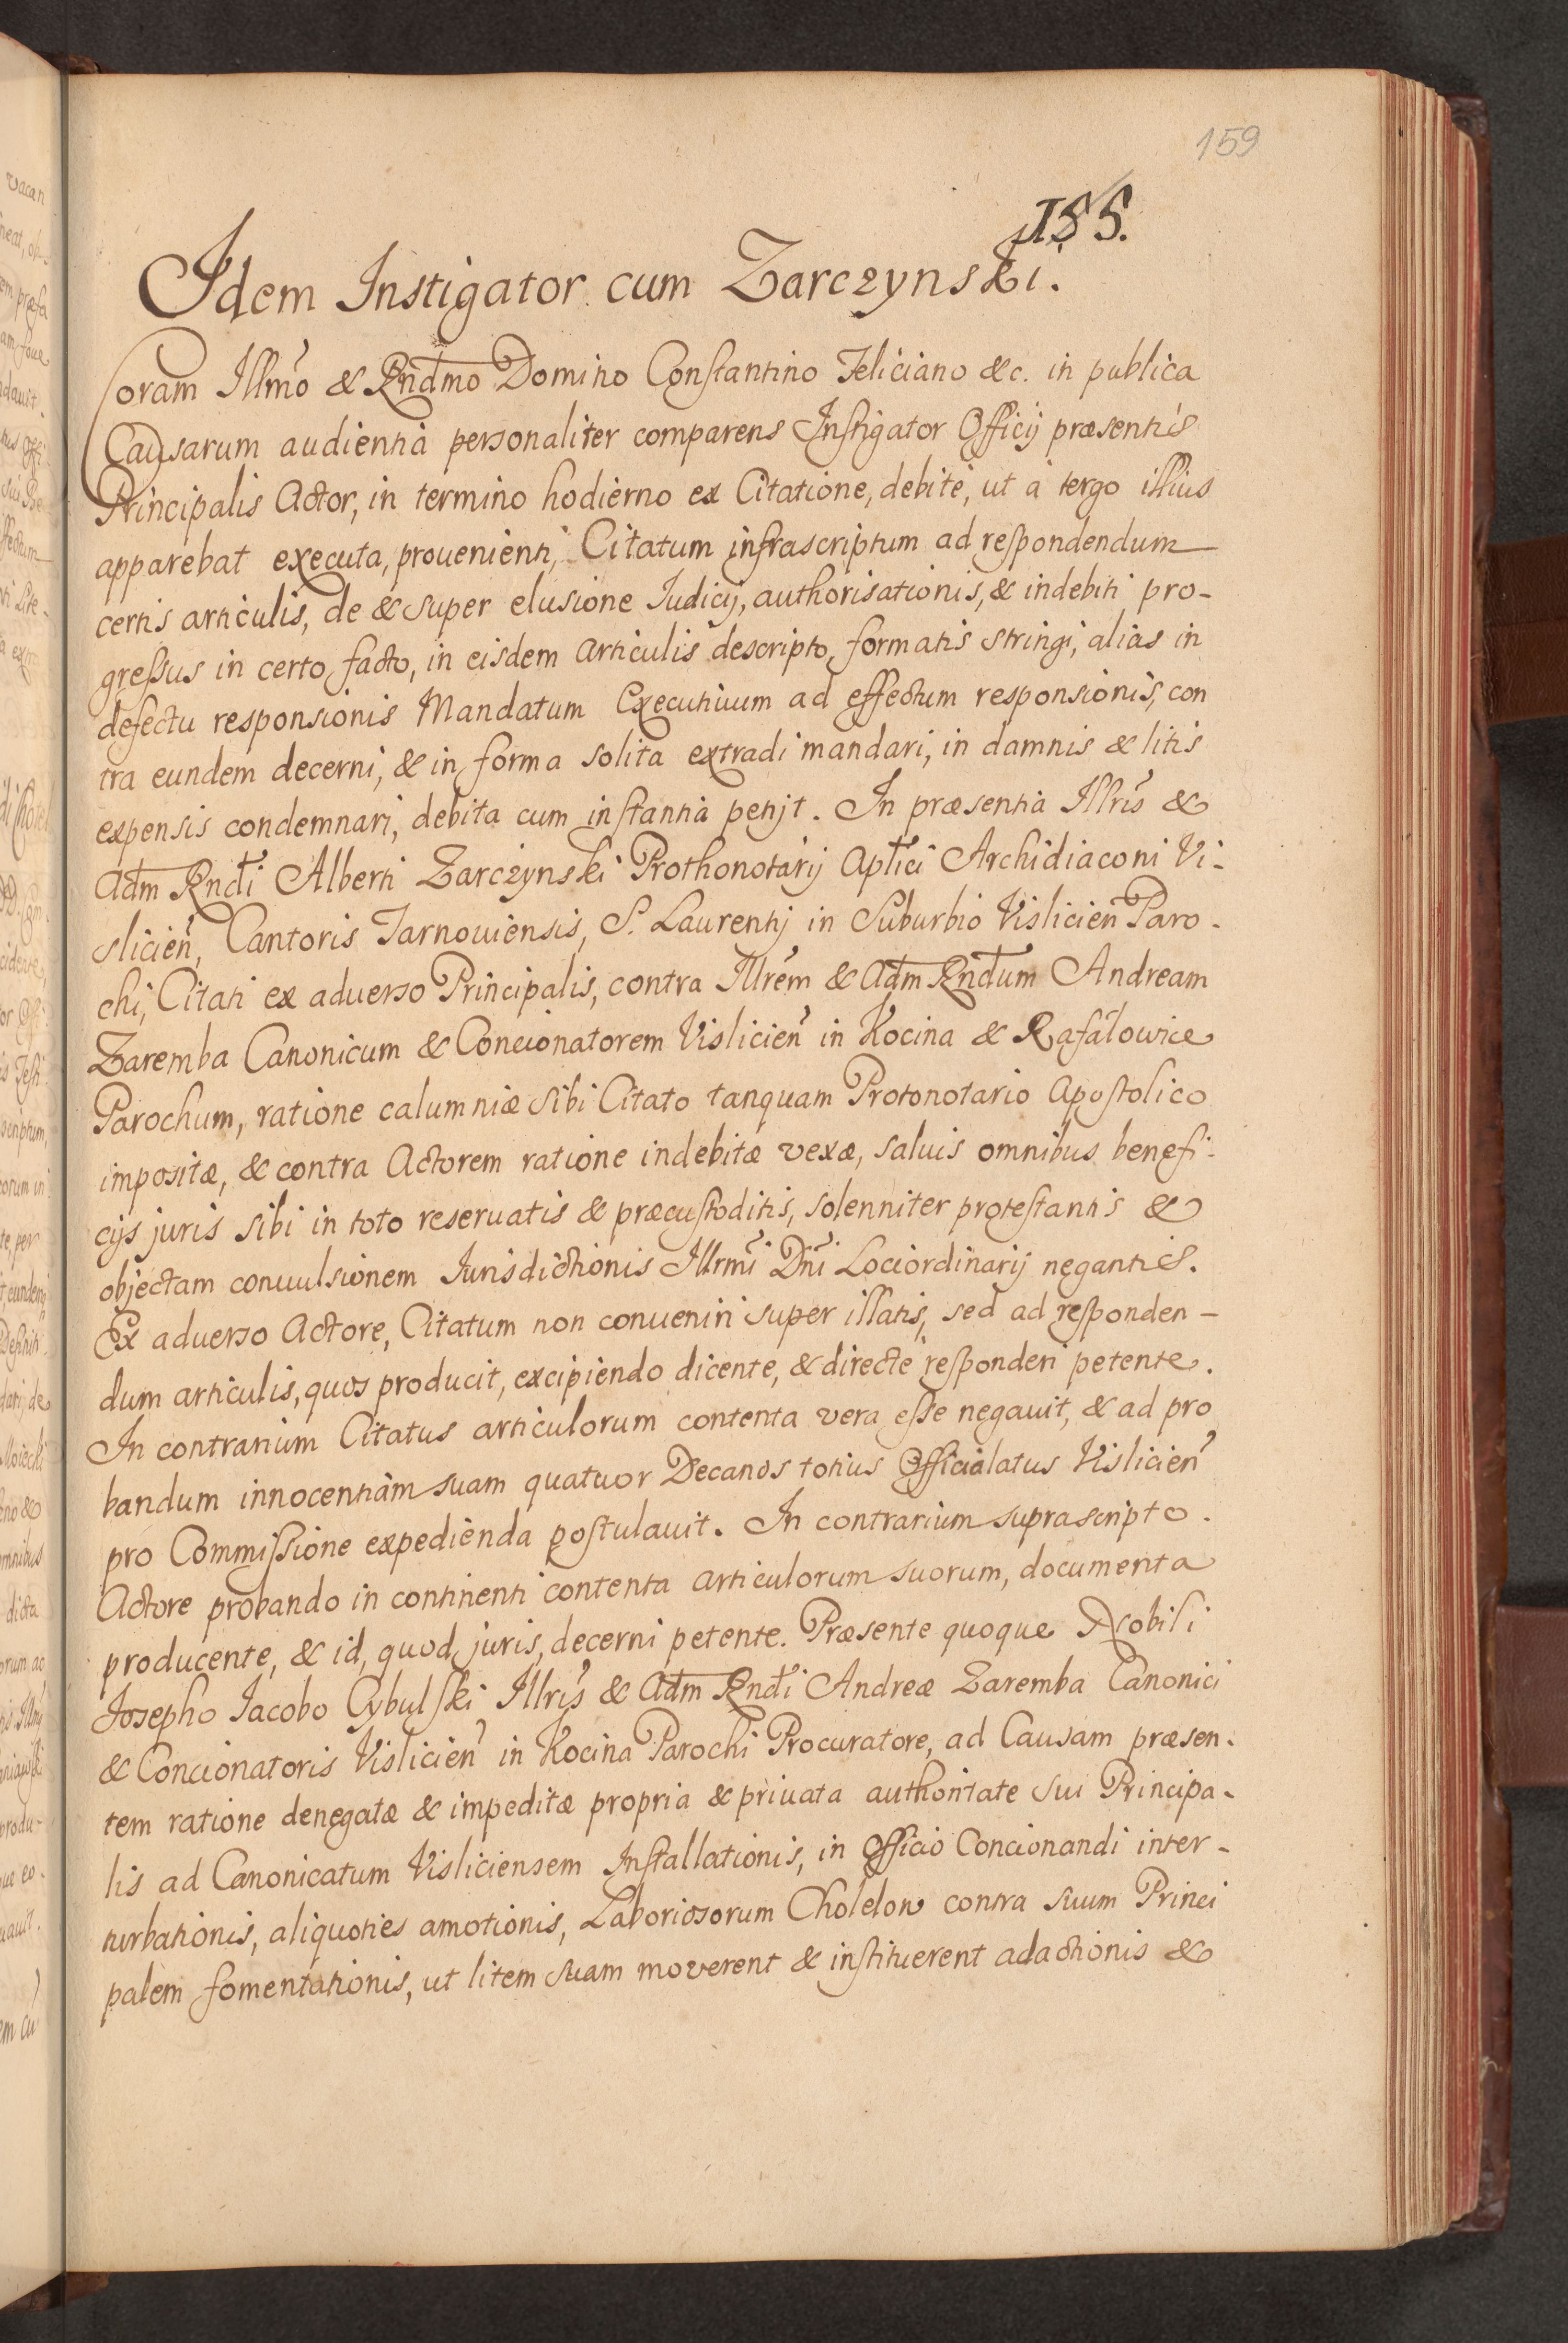 159
155.
Idem Instigator cum Zarczynski.
Coram Illmo & Rndmo Domino Constantino Feliciano &c. in publica
Causarum audientia personaliter comparens Instigator Officij præsentis
Principalis Actor, in termino hodierno ex Citatione, debite, ut à tergo illius
apparebat executa, prouenienti, Citatum infrascriptum ad respondendum
certis articulis, de & super elusione Iudicij, authorisationis, & indebiti pro-
gressus in certo facto, in eisdem articulis descripto, formatis stringi, alias in
defectu responsionis Mandatum Executiuum ad effectum responsionis, con
tra eundem decerni, & in forma solita extradi mandari, in damnis & litis
expensis condemnari, debita cum instantia petijt. In præsentia Illris &
Adm Rndi Alberti Zarczynski Prothonotarij Aplici Archidiaconi Vi-
slicien, Cantoris Tarnouiensis, S. Laurentij in Suburbio Vislicien Paro-
chi, Citati ex aduerso Principalis, contra Illrem & Adm Rndum Andream
Zaremba Canonicum & Concionatorem Vislicien in Kocina & Rafałowice
Parochum, ratione calumniæ sibi Citato tanquam Protonotario Apostolico
impositæ, & contra Actorem ratione indebitæ vexæ, saluis omnibus benefi-
cijs juris sibi in toto reseruatis & præcustoditis, solenniter protestantis &
objectam conuulsionem Iurisdictionis Illrmi Dni Lociordinarij negantis.
Ex aduerso Actore, Citatum non conueniri super illatis, sed ad responden-
dum articulis, quos producit, excipiendo dicente, & directe responderi petente.
In contrarium Citatus articulorum contenta vera esse negauit, & ad pro
bandum innocentiam suam quatuor Decanos totius Officialatus Vislicien
pro Commissione expedienda postulauit. In contrarium suprascripto
Actore probando in continenti contenta articulorum suorum, documenta
producente, & id, quod juris, decerni petente. Præsente quoque Nobili
Josepho Iacobo Cybulski Illris & Adm Rndi Andreæ Zaremba Canonici
& Concionatoris Vislicien in Kocina Parochi Procuratore, ad Causam præsen-
tem ratione denegatæ & impeditæ propria & priuata authoritate sui Principa-
lis ad Canonicatum Visliciensem Installationis, in Officio Concionandi inter-
turbationis, aliquoties amotionis, Laboriosorum Cholelow contra suum Princi
palem fomentationis, ut litem suam moverent & instituerent adactionis &